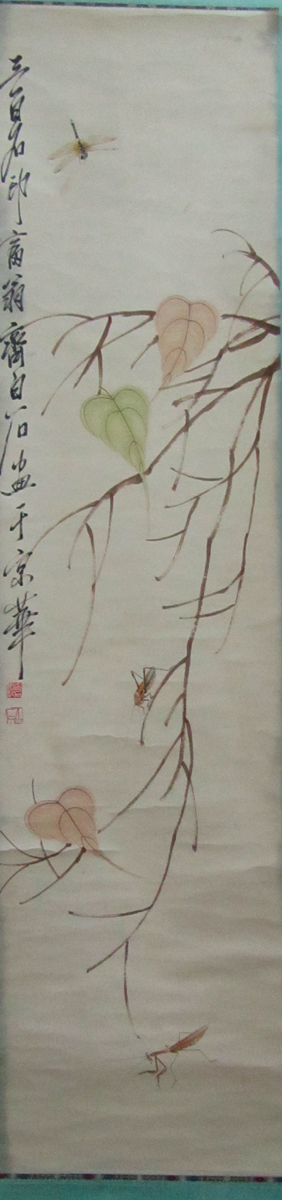 三百石印富翁齊白石畫于京華